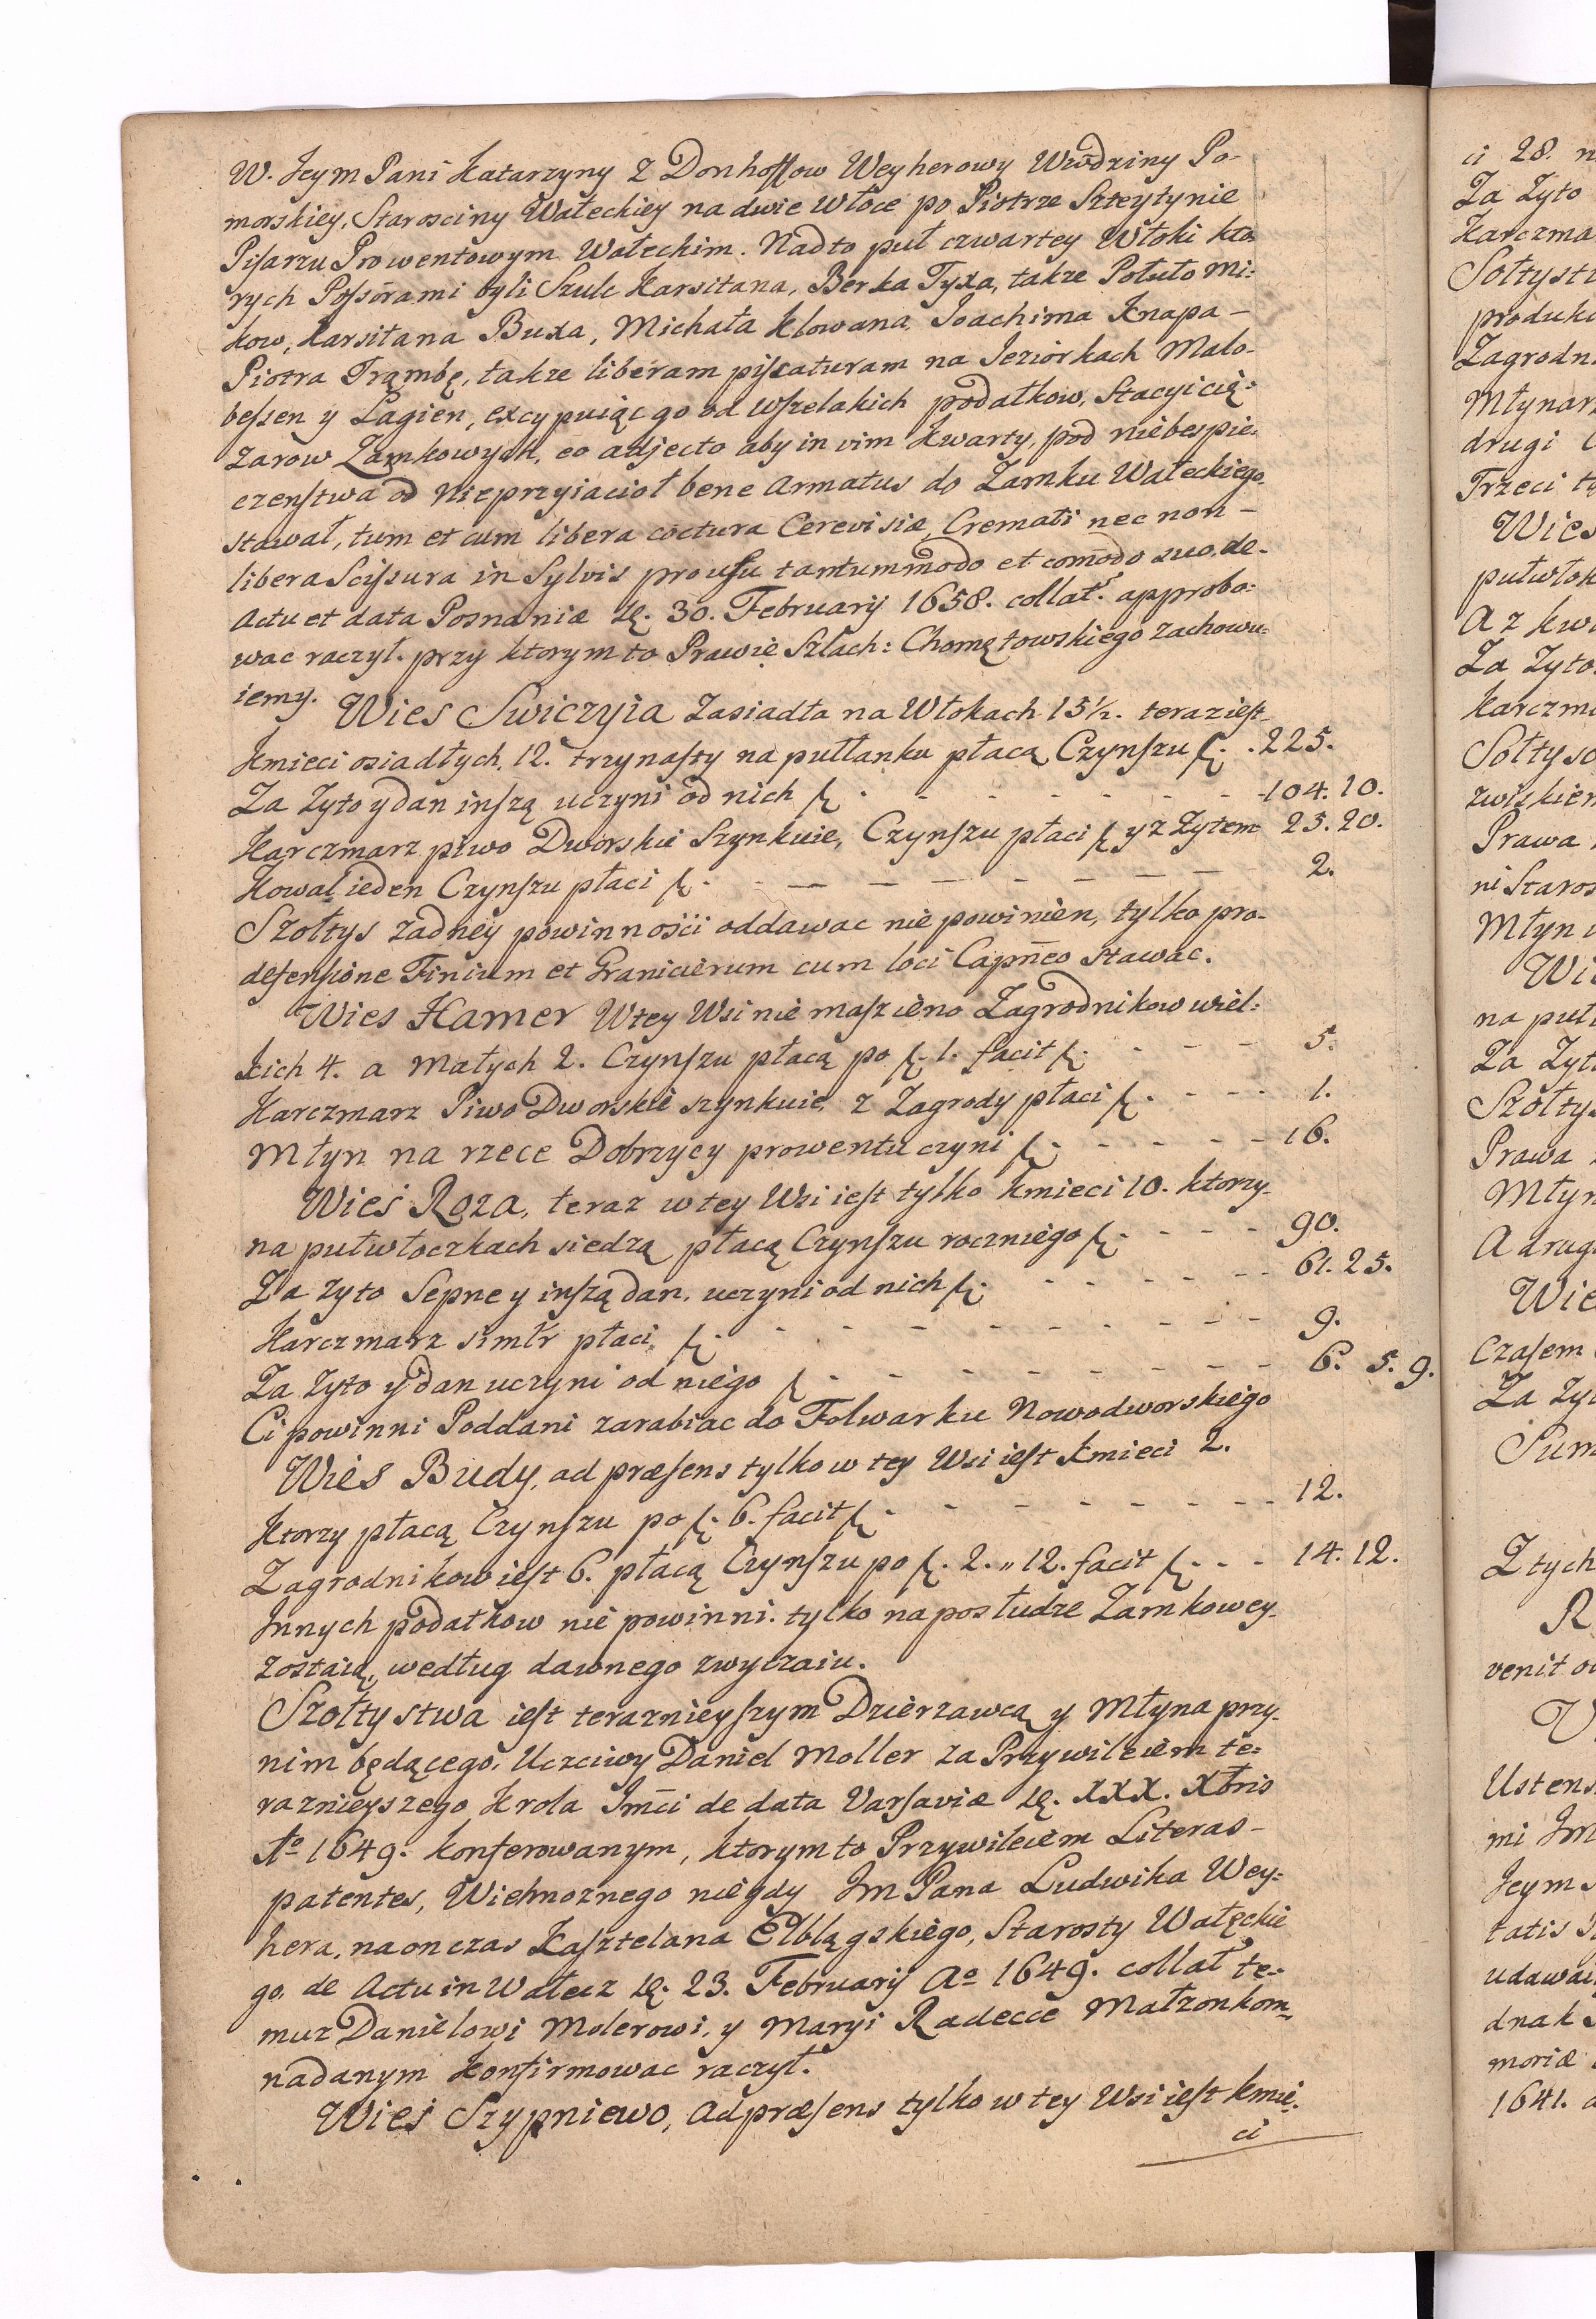 W. Jeym Pani Katarzyny z Donhoffow Weyherowy Wwdziny Po-
morskiey, Starosciny Wałeckiey na dwie włoce po Piotrze Szteytynie
Pisarzu Prowentowym Wałeckim. Nadto puł czwartey Włoki kto-
rych Possorami byli Szulc Karsitana, Berka Tyxa, takze Połuło Mi-
kow, Karsitana Buxa, Michała Klowana, Joachima Knapa -
Piotra Trąmbę, takze liberam piscaturam na Jeziorkach Malo-
bessen y Lagien, excypuiąc go od wszelakich podatkow, Stacyi cię-
zarow Zamkowych, eo adjecto aby in vim kwarty, pod niebespie-
czenstwa od Nieprzyiacioł bene Armatus do Zamku Wałeckiego
stawał, tum et cum libera coctura Cerevisiæ, Cremati nec non -
libera Scissura in Sylvis pro usu tantummodo et comodo suo, de-
Actu et data Posnaniæ d. 30. February 1658. collat. approbo-
wac raczył. przy ktorym to Prawie Szlach: Chomętowskiego zachowu-
iemy.
Wies Swiczyia Zasiadła na Włokach 15½. teraz iest
Kmieci osiadłych, 12. trzynasty na pułłanku płacą Czynszu f. 225.
Za Zyto y dan inszą uczyni od nich f. - - - - - - 104. 10.
Karczmarz piwo Dworskie Szynkuie, Czynszu płaci f y z Zytem 25. 20.
Kowal ieden Czynszu płaci f. - - - - - - - 2.
Szołtys zadney powinności oddawac nie powinien, tylko pro-
defensione Finium et Granicierum cum loci Capñeo stawac.
Wies Hamer W tey Wsi nie masz ieno Zagrodnikow wiel-
kich 4. a Małych 2. Czynszu płacą po f. 1. facit f. - - - 5.
Karczmarz Piwo Dworskie szynkuie, z Zagrody płaci f. - - - 1.
Młyn na rzece Dobrzycy prowentu czyni f. - - - - - 16.
Wieś Roza, teraz w tey Wsi iest tylko kmieci 10. ktorzy
na pułwłoczkach siedzą płacą Czynszu roczniego f. - - - - 90.
Za zyto Sepne y inszą dan, uczyni od nich f. - - - - - 61. 25.
Karczmarz simłr płaci, f. - - - - - - - - 9.
Za zyto y dan uczyni od niego f. - - - - - - - 6. 5. 9.
Ci powinni Poddani zarabiac do Folwarku Nowodworskiego
Wies Budy, ad præsens tylko w tey Wsi iest kmieci 2.
Ktorzy płacą Czynszu po f. 6. facit f. - - - - - - - 12.
Zagrodnikow iest 6. płacą Czynszu po f. 2. „ 12. facit f. - - - 14. 12.
Innych podatkow nie powinni. tylko na posłudze Zamkowey
zostaią, według dawnego zwyczaiu.
Szołtystwa iest teraznieyszym Dzierzawcą y Młyna przy
nim będącego, Uczciwy Daniel Moller za Przywileiem te-
raznieyszego Krola Jmci de data Varsaviæ d. xxx. Xbris
Ao 1649. konferowanym, ktorym to Przywileiem Literas -
patentes, Wielmoznego niegdy Jm Pana Ludwika Wey-
hera, na on czas Kasztelana Elblągskiego, Starosty Wałęckie
go, de Actu in Wałecz d. 23. February Ao 1649. collat te-
muz Danielowi Molerowi, y Maryi Radecce Małzonkom
nadanym konfirmowac raczył.
Wieś Szypniewo, Ad præsens tylko w tey Wsi iest kmie-
ci